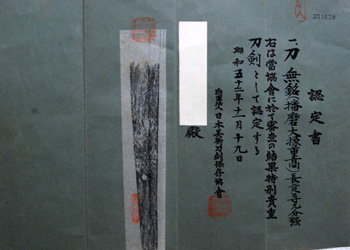 351629
認定書
一、刀 無銘(播磨大掾重高)長弐尺弐寸九分強
右は當協會に於て審査の結果特別貴重
刀剣として認定する
昭和五十二年十一月十九日
財団法人日本美術刀剣保存協會
殿